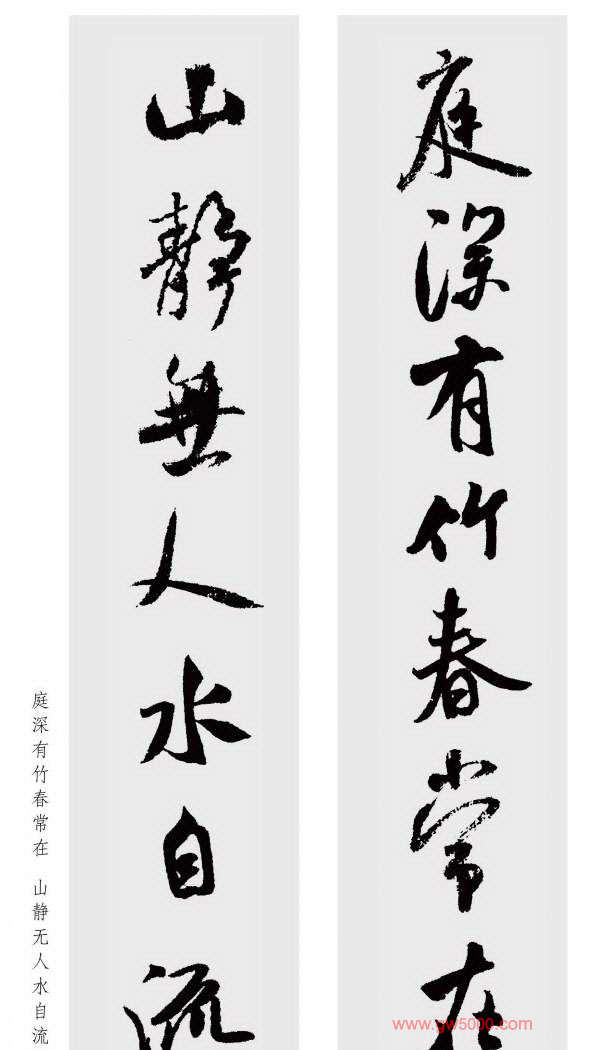 庭深有竹春常在
山靜無人水自流
庭深有竹春常在 山静无人水自流
www.gw5000.com